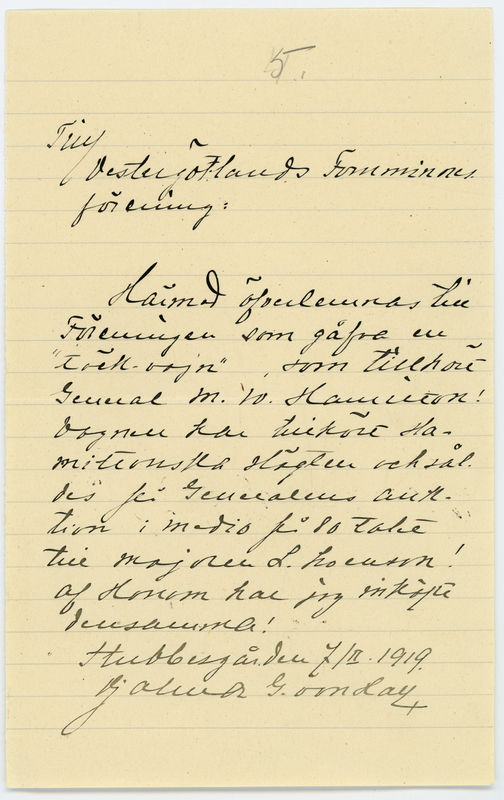 5.
Till
Vestergötlands Fornminnes
förening:
Härmed öfverlemnas till
Föreningen som gåfva en
"Töck-vagn", som tillhört
General M. W. Hamilton!
Vagnen har tillhört Ha-
miltonska släglen och sål
des på Generalens auk-
tion i medio på 80 talet
till majoren L. Loenson!
af Honom har jag inköpt
densamma!
Stubbegården 7/II. 1919.
Hjalmar G.